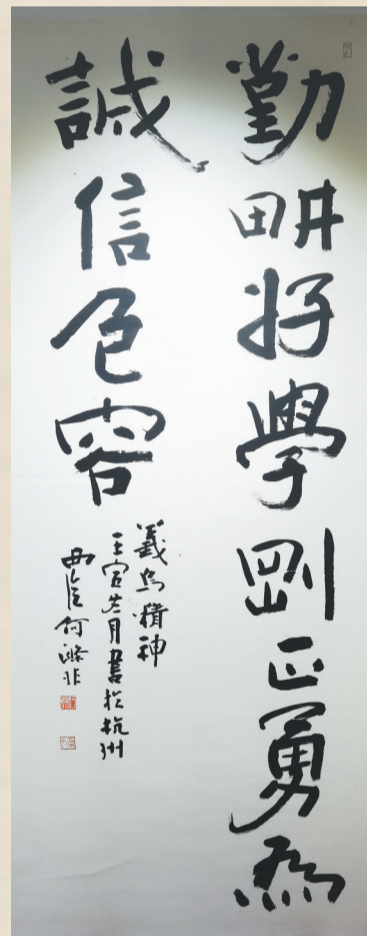 勤畊好學剛正勇為
誠信包容
義烏精神
壬寅荷月書於杭州
西泠何滌非